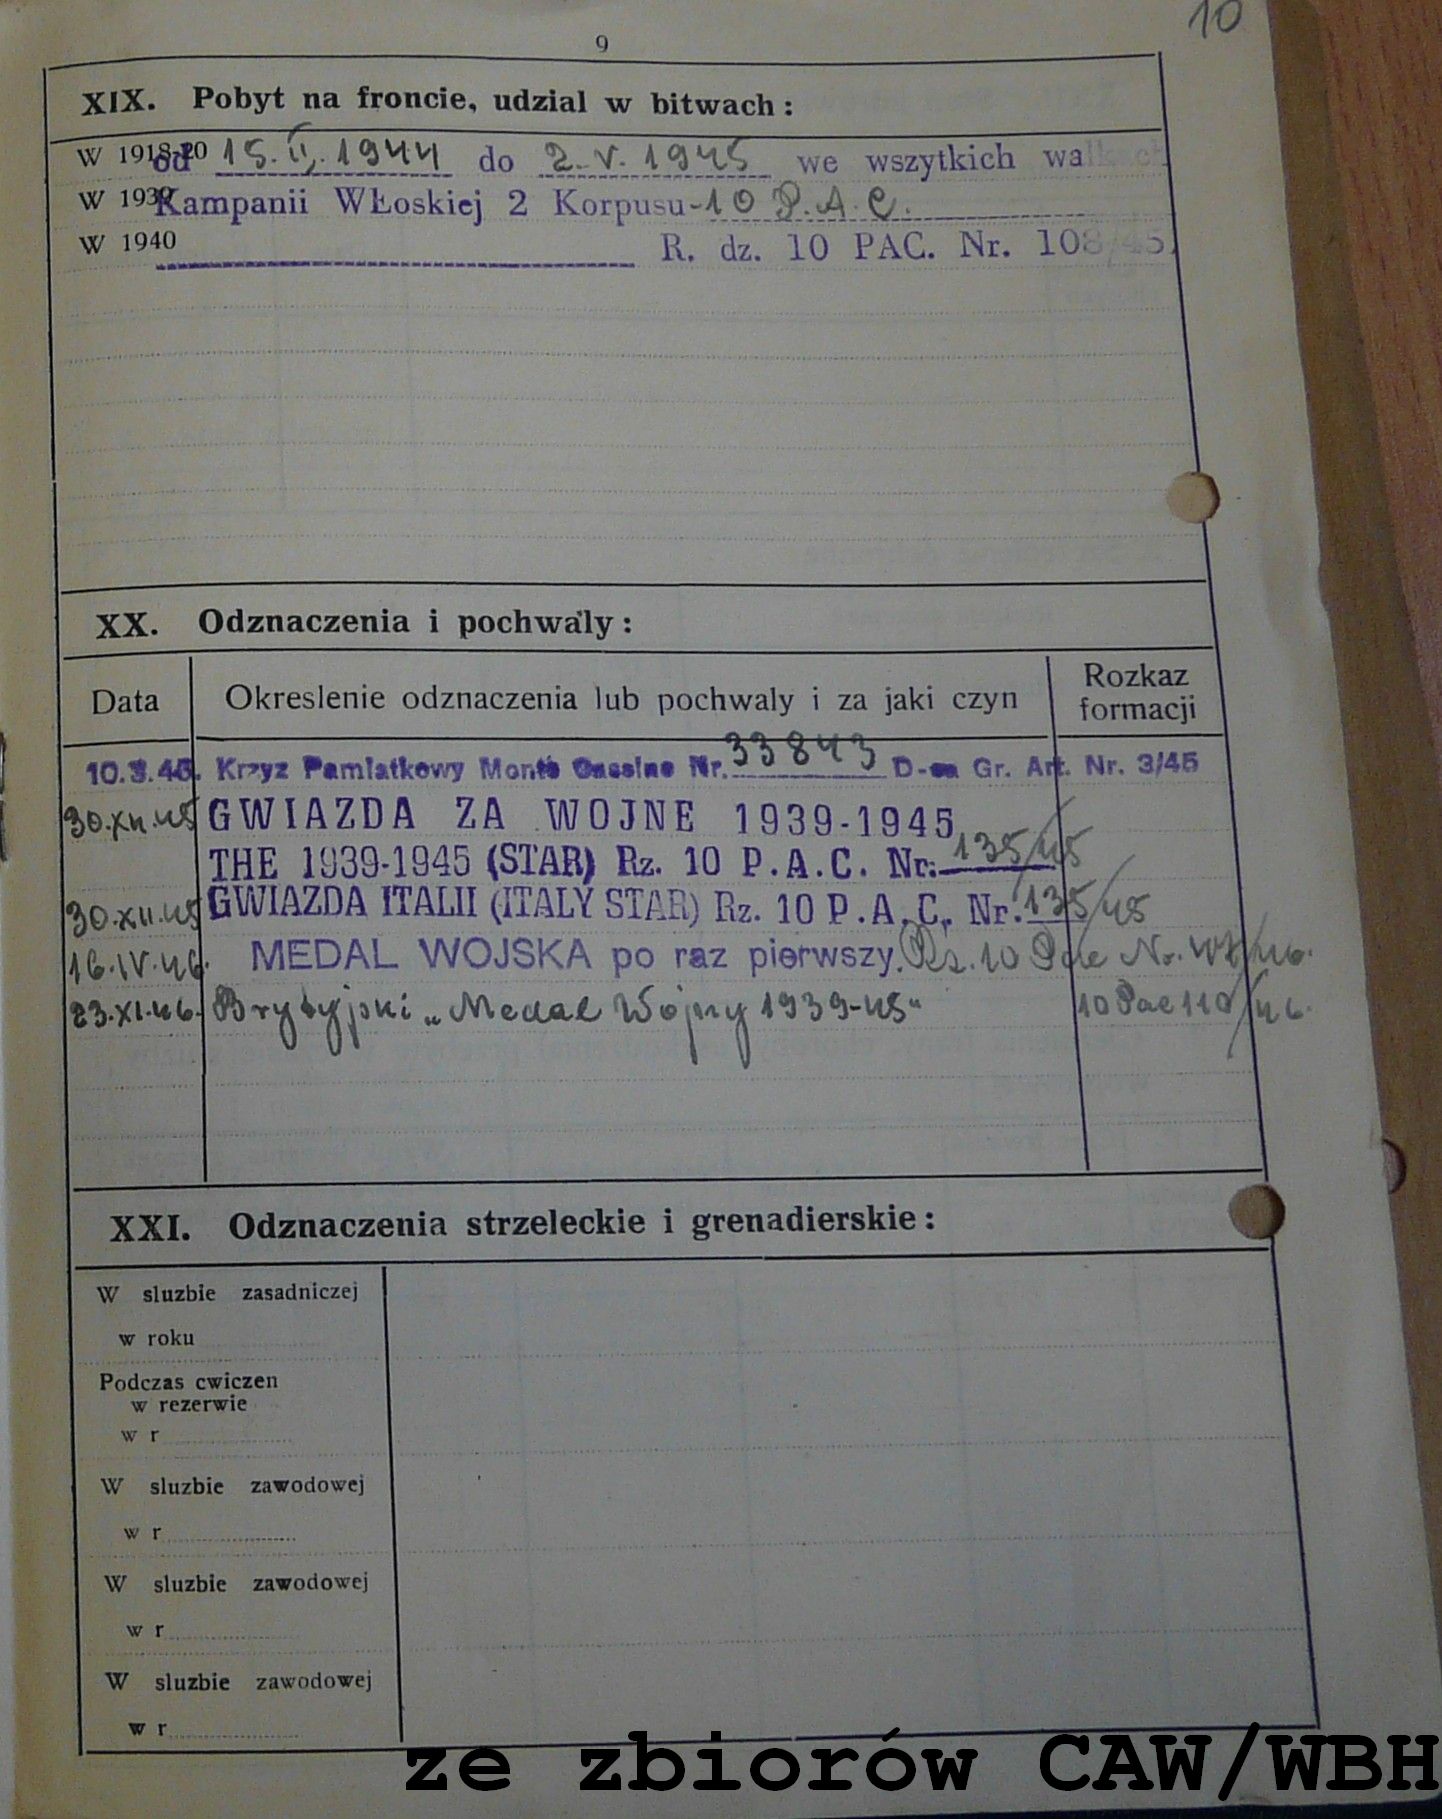 10
9
XIX. Pobyt na froncie, udzial w bitwach:
W 1918-20 od 15.II.1944 do 2.V.1945 we wszytkich walkach
W 1939 Kampanii WŁoskiej 2 Korpusu-10 P.A.C.
W 1940 R. dz. 10 PAC. Nr. 108/45.
XX. Odznaczenia i pochwaly:
Data Okreslenie odznaczenia lub pochwaly i za jaki czyn Rozkaz formacji
10.3.45. Krzyz Pamiatkowy Monte Cassino Nr. 33843 D-ca Gr. Art. Nr. 3/45
30.XII.45 GWIAZDA ZA WOJNE 1939-1945
THE 1939-1945 (STAR) Rz. 10 P.A.C. Nr. 135/45
30.XII.45 GWIAZDA ITALII (ITALY STAR) Rz. 10 P.A.C. Nr. 135/45
16.IV.46. MEDAL WOJSKA po raz pierwszy. Rz. 10 Pac Nr. /46.
23.XI.46. Brytyjski „Medal Wojny 1939-45" 10 Pac 110/46.
XXI. Odznaczenia strzeleckie i grenadierskie:
W sluzbie zasadniczej
w roku
Podczas cwiczen
w rezerwie
w r
W sluzbie zawodowej
w r
W sluzbie zawodowej
w r
W sluzbie zawodowej
w r
ze zbiorów CAW/WBH